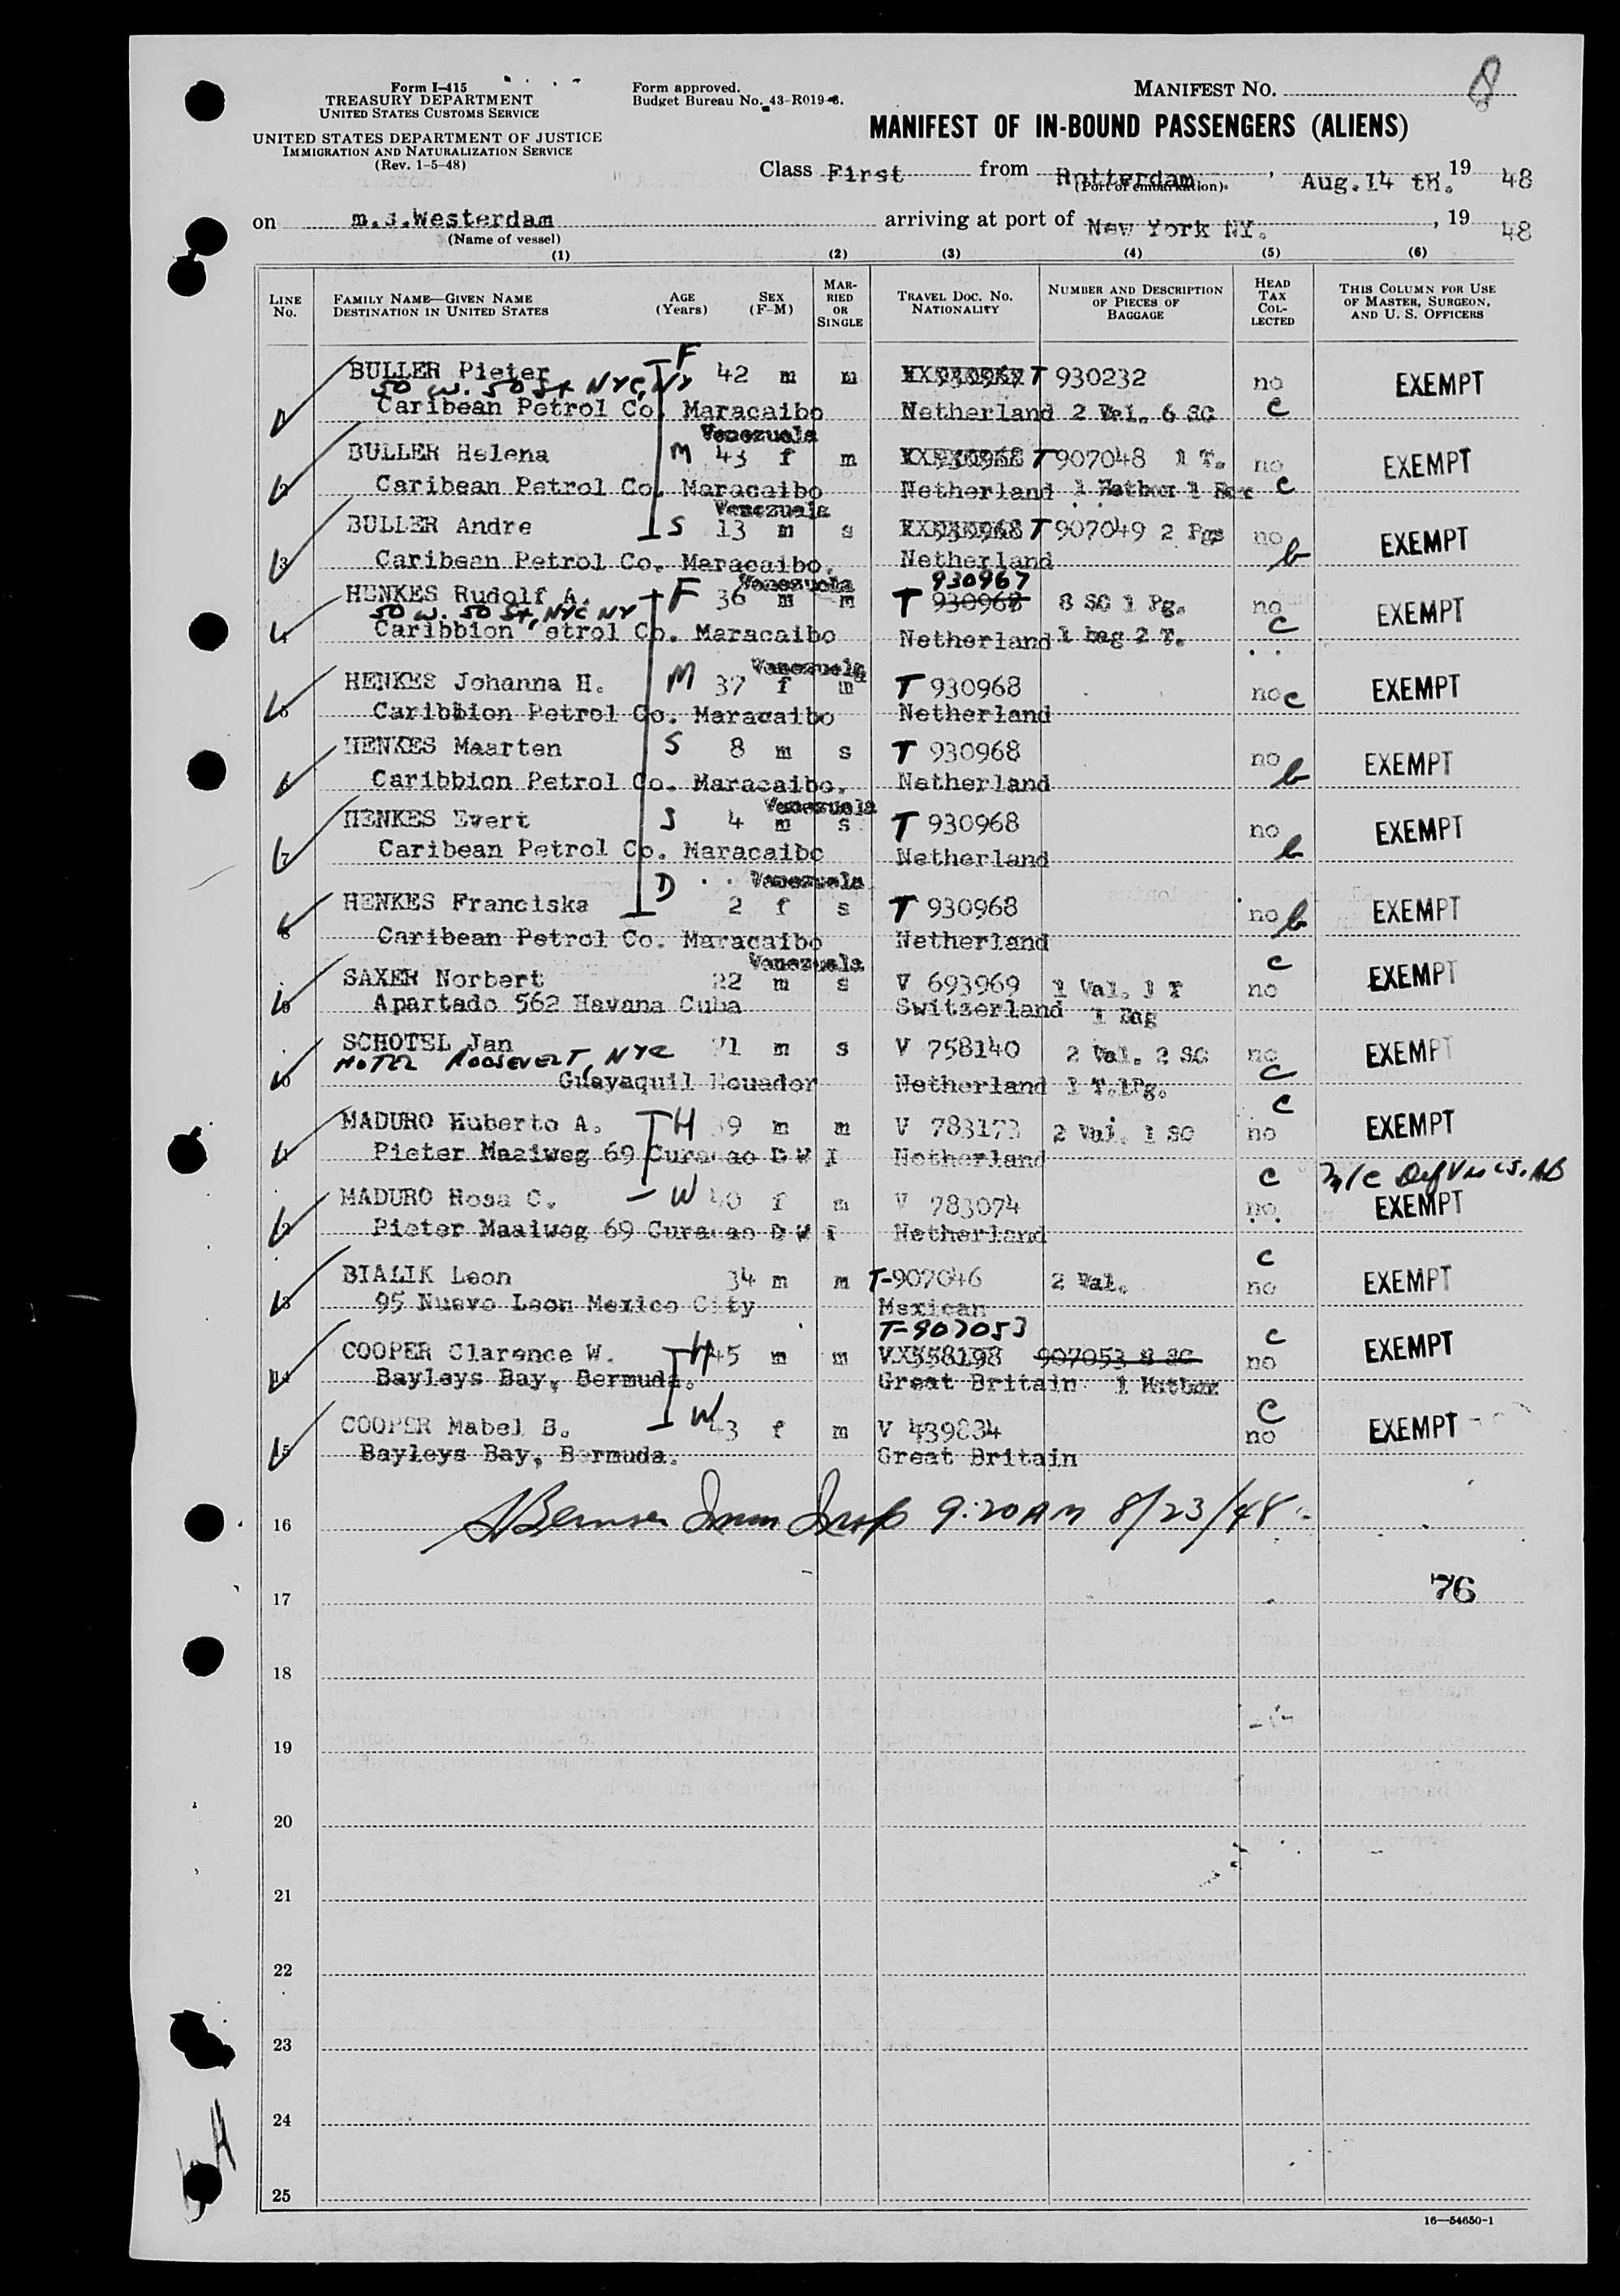 Form I-415
TREASURY DEPARTMENT
UNITED STATES CUSTOMS SERVICE
UNITED STATES DEPARTMENT OF JUSTICE
IMMIGRATION AND NATURALIZATION SERVICE
(Rev. 1-5-48)
Form approved.
Budget Bureau No. 43-R019-
MANIFEST NO. 8
MANIFEST OF IN-BOUND PASSENGERS (ALIENS)
Class First from Rotterdam, Aug.14 th. 19 48
(Port of embarkation)
on m.s.Westerdam arriving at port of New York NY., 19 48
(Name of vessel)
(1) (2) (3) (4) (5) (6)
LINE NO. FAMILY NAME—GIVEN NAME DESTINATION IN UNITED STATES AGE (Years) SEX (F-M) MARRIED OR SINGLE TRAVEL DOC. NO. NATIONALITY NUMBER AND DESCRIPTION OF PIECES OF BAGGAGE HEAD TAX COLLECTED THIS COLUMN FOR USE OF MASTER, SURGEON, AND U. S. OFFICERS
BULLER Pieter F 42 m m T 930232 no EXEMPT
50 W. 50 St NYC, NY
1 Caribean Petrol Co. Maracaibo Netherland 2 Val. 6 SC c
Venezuela
BULLER Helena M 43 f m T 907048 1 T. no EXEMPT
2 Caribean Petrol Co. Maracaibo Netherland 1 Hatbox 1 Box c
Venezuela
BULLER Andre S 13 m s T 907049 2 Pgs no EXEMPT
3 Caribean Petrol Co. Maracaibo. Netherland b
Venezuela 930967
HENKES Rudolf A. F 36 m m T 930968 8 SC 1 Pg. no EXEMPT
50 W. 50 St, NYC NY
4 Caribbion etrol Co. Maracaibo Netherland 1 bag 2 T. c
Venezuela
HENKES Johanna H. M 37 f m T 930968 no c EXEMPT
5 Caribbion Petrol Co. Maracaibo Netherland
HENKES Maarten S 8 m s T 930968 no EXEMPT
6 Caribbion Petrol Co. Maracaibo. Netherland b
Venezuela
HENKES Evert S 4 m s T 930968 no EXEMPT
7 Caribean Petrol Co. Maracaibo Netherland b
Venezuela
HENKES Franciska D 2 f s T 930968 no b EXEMPT
8 Caribean Petrol Co. Maracaibo Netherland
Venezuela c
SAXER Norbert 22 m s V 693969 1 Val. 1 T no EXEMPT
9 Apartado 562 Havana Cuba Switzerland 1 Bag
SCHOTEL Jan 21 m s V 758140 2 Val. 2 SC no EXEMPT
HOTEL ROOSEVELT, NYC c
10 Guayaquil Ecuador Netherland 1 T.1Pg.
c
MADURO Huberto A. H 39 m m V 783173 2 Val. 1 SC no EXEMPT
11 Pieter Maaiweg 69 Curacao D W I Netherland
c
MADURO Rosa C. W 40 f m V 783074 no EXEMPT
12 Pieter Maaiweg 69 Curacao D W I Netherland
c
BIALIK Leon 34 m m T-907046 2 Val. no EXEMPT
13 95 Nuevo Leon Mexico City Mexican
T-907053 c
COOPER Clarence W. H 45 m m 907053 8 SC no EXEMPT
14 Bayleys Bay, Bermuda. Great Britain 1 Hatbox
c
COOPER Mabel B. W 43 f m V 439834 no EXEMPT
15 Bayleys Bay, Bermuda. Great Britain
16 Imm Insp 9:20 AM 8/23/48
17 76
18
19
20
21
22
23
24
25
16—54650-1